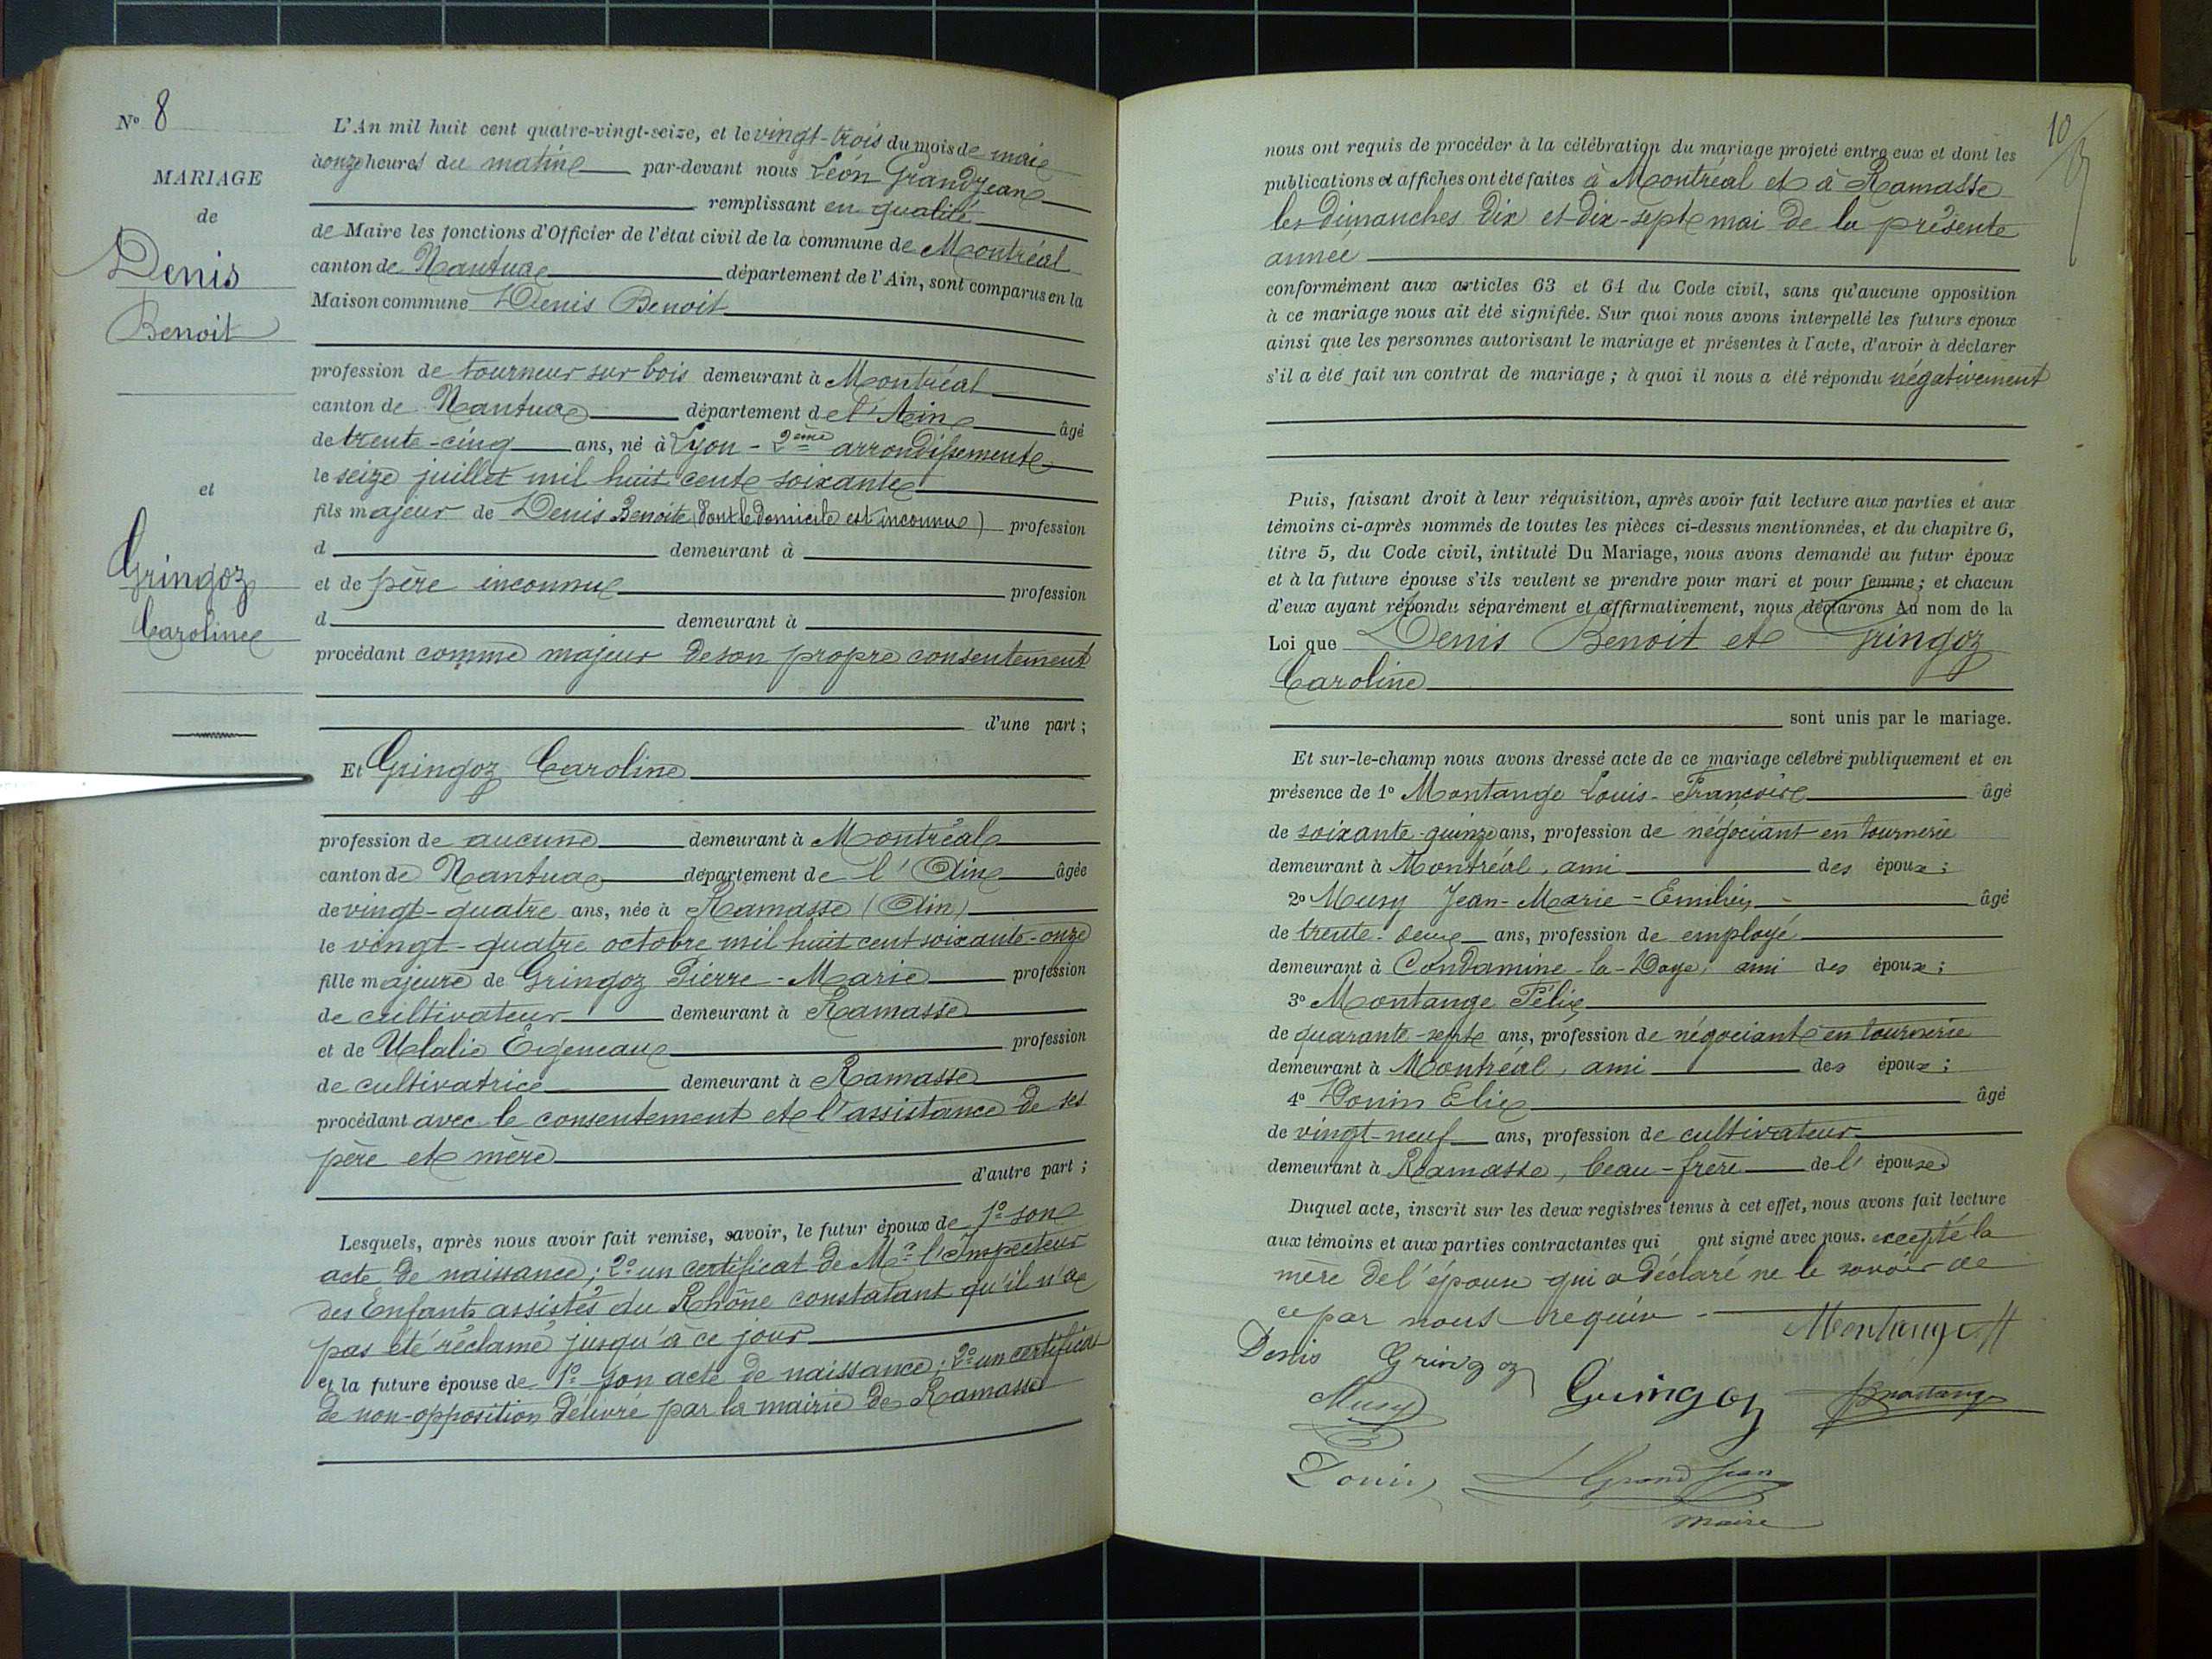 N° 8
MARIAGE
de
Denis
Benoit
et
Gringoz
Caroline
L'An mil huit cent quatre-vingt-seize, et le vingt-trois du mois de mai
à onze heures du matin par-devant nous Léon Grandjean
remplissant en qualité
de Maire les fonctions d'Officier de l'état civil de la commune de Montréal
canton de Nantua département de l'Ain, sont comparus en la
Maison commune Denis Benoit
profession de tourneur sur bois demeurant à Montréal
canton de Nantua département de l'Ain âgé
de trente-cinq ans, né à Lyon - 2ème arrondissement
le seize juillet mil huit cent soixante
fils majeur de Denis Benoite (dont le domicile est inconnu) profession
d demeurant à
et de père inconnu profession
d demeurant à
procédant comme majeur de son propre consentement
d'une part ;
Et Gringoz Caroline
profession de aucune demeurant à Montréal
canton de Nantua département de l'Ain âgée
de vingt-quatre ans, née à Ramasse (Ain)
le vingt-quatre octobre mil huit cent soixante-onze
fille majeure de Gringoz Pierre-Marie profession
de cultivateur demeurant à Ramasse
et de Ulalie Egeneau profession
de cultivatrice demeurant à Ramasse
procédant avec le consentement et l'assistance de ses
père et mère
d'autre part ;
Lesquels, après nous avoir fait remise, savoir, le futur époux de 1° son
acte de naissance ; 2° un certificat de Mr l'Inspecteur
des Enfants assistés du Rhône constatant qu'il n'a
pas été réclamé jusqu'à ce jour
et la future épouse de 1° son acte de naissance ; 2° un certificat
de non-opposition délivré par la mairie de Ramasse
10
nous ont requis de procéder à la célébration du mariage projeté entre eux et dont les
publications et affiches ont été faites à Montréal et à Ramasse
les dimanches dix et dix-sept mai de la présente
année
conformément aux articles 63 et 64 du Code civil, sans qu'aucune opposition
à ce mariage nous ait été signifiée. Sur quoi nous avons interpellé les futurs époux
ainsi que les personnes autorisant le mariage et présentes à l'acte, d'avoir à déclarer
s'il a été fait un contrat de mariage ; à quoi il nous a été répondu négativement
Puis, faisant droit à leur réquisition, après avoir fait lecture aux parties et aux
témoins ci-après nommés de toutes les pièces ci-dessus mentionnées, et du chapitre 6,
titre 5, du Code civil, intitulé Du Mariage, nous avons demandé au futur époux
et à la future épouse s'ils veulent se prendre pour mari et pour femme ; et chacun
d'eux ayant répondu séparément et affirmativement, nous déclarons Au nom de la
Loi que Denis Benoit et Gringoz
Caroline
sont unis par le mariage.
Et sur-le-champ nous avons dressé acte de ce mariage célébré publiquement et en
présence de 1° Montange Louis-François âgé
de soixante-quinze ans, profession de négociant en tournerie
demeurant à Montréal, ami des époux ;
2° Musy Jean-Marie-Emilien âgé
de trente-deux ans, profession de employé
demeurant à Condamine-la-Doye, ami des époux ;
3° Montange Félix
de quarante-sept ans, profession de négociant en tournerie
demeurant à Montréal, ami des époux ;
4° Donin Elie âgé
de vingt-neuf ans, profession de cultivateur
demeurant à Ramasse, beau-frère de l'épouse
Duquel acte, inscrit sur les deux registres tenus à cet effet, nous avons fait lecture
aux témoins et aux parties contractantes qui ont signé avec nous. excepté la
mère de l'épouse qui a déclaré ne le savoir de
ce par nous requise.
Montange
Denis Gringoz
Musy Gringoz Fmontange
Donin LGrandjean
maire